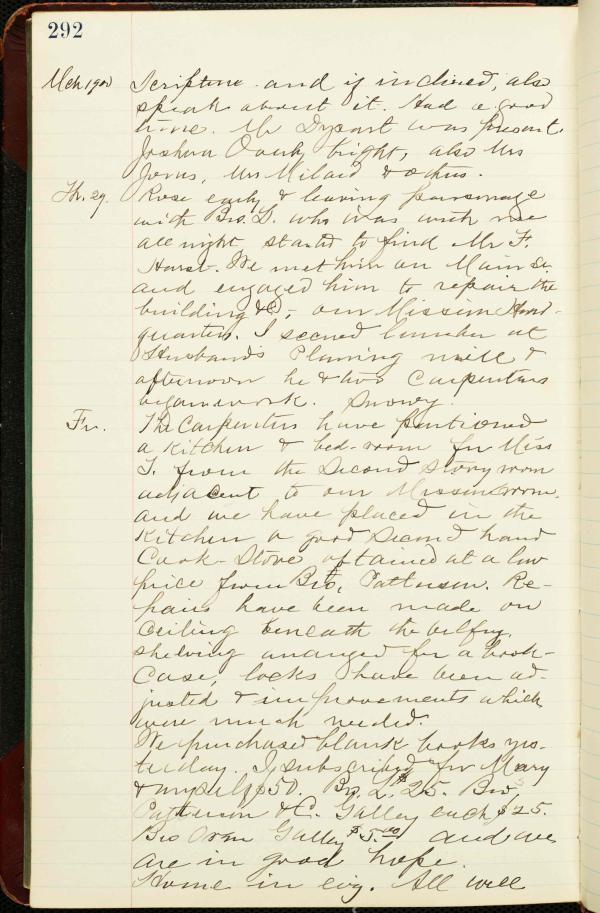 292
Mch 1900 Scripture and if inclined, also
speak about it. Had a good
time. Mr Dysart was present.
Joshua bright, also Mrs
Mrs Milaid & others.
Th. 29. Rose early & leaving parsonage
with Bro. L. who was with me
all night, started to find Mr F.
Hurst. We met him on Main St.
and engaged him to repair the
building &c, our Mission Head-
quarters. I secured lumber at
Husbands Planing mill &
afternoon he & two Carpenters
began work. Snowy.
Fri. The Carpenters have partioned
a Kitchen & bed-room for Miss
T. from the Second Story room
adjacent to our Mission room.
and we have placed in the
Kitchen a good Second hand
Cook-Stove obtained at a low
price from Bro. Patterson. Re-
pairs have been made on
Ceiling beneath the belfry,
shelving arranged for a book-
Case, locks have been ad-
justed & improvements which
were much needed.
We purchased blank books yes-
terday. I subscribed for Mary
& myself $50. Bro. L. $25. Bros
Patterson & C. Galley each $25.
Bro Oran Galley $5.00 and we
are in good hope.
Home in evg. All well